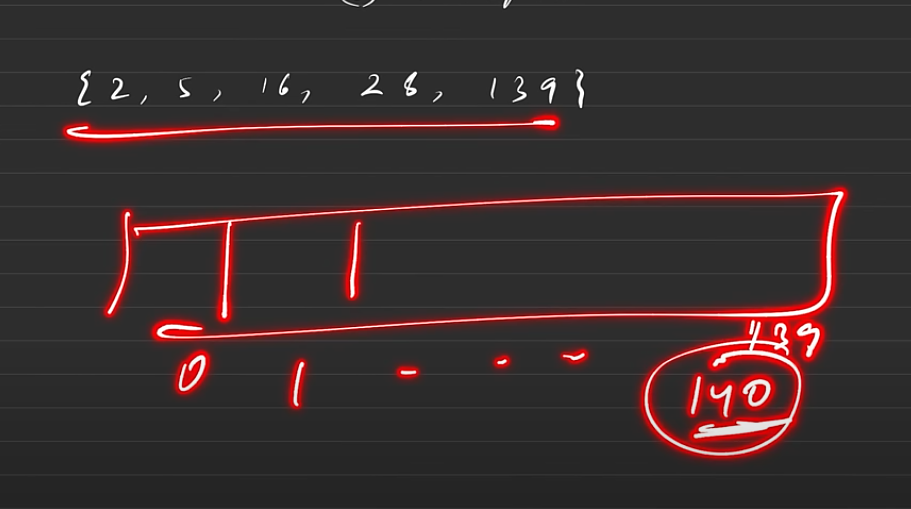 {2, 5, 16, 28, 139}
0 1 - - ~ 139
140